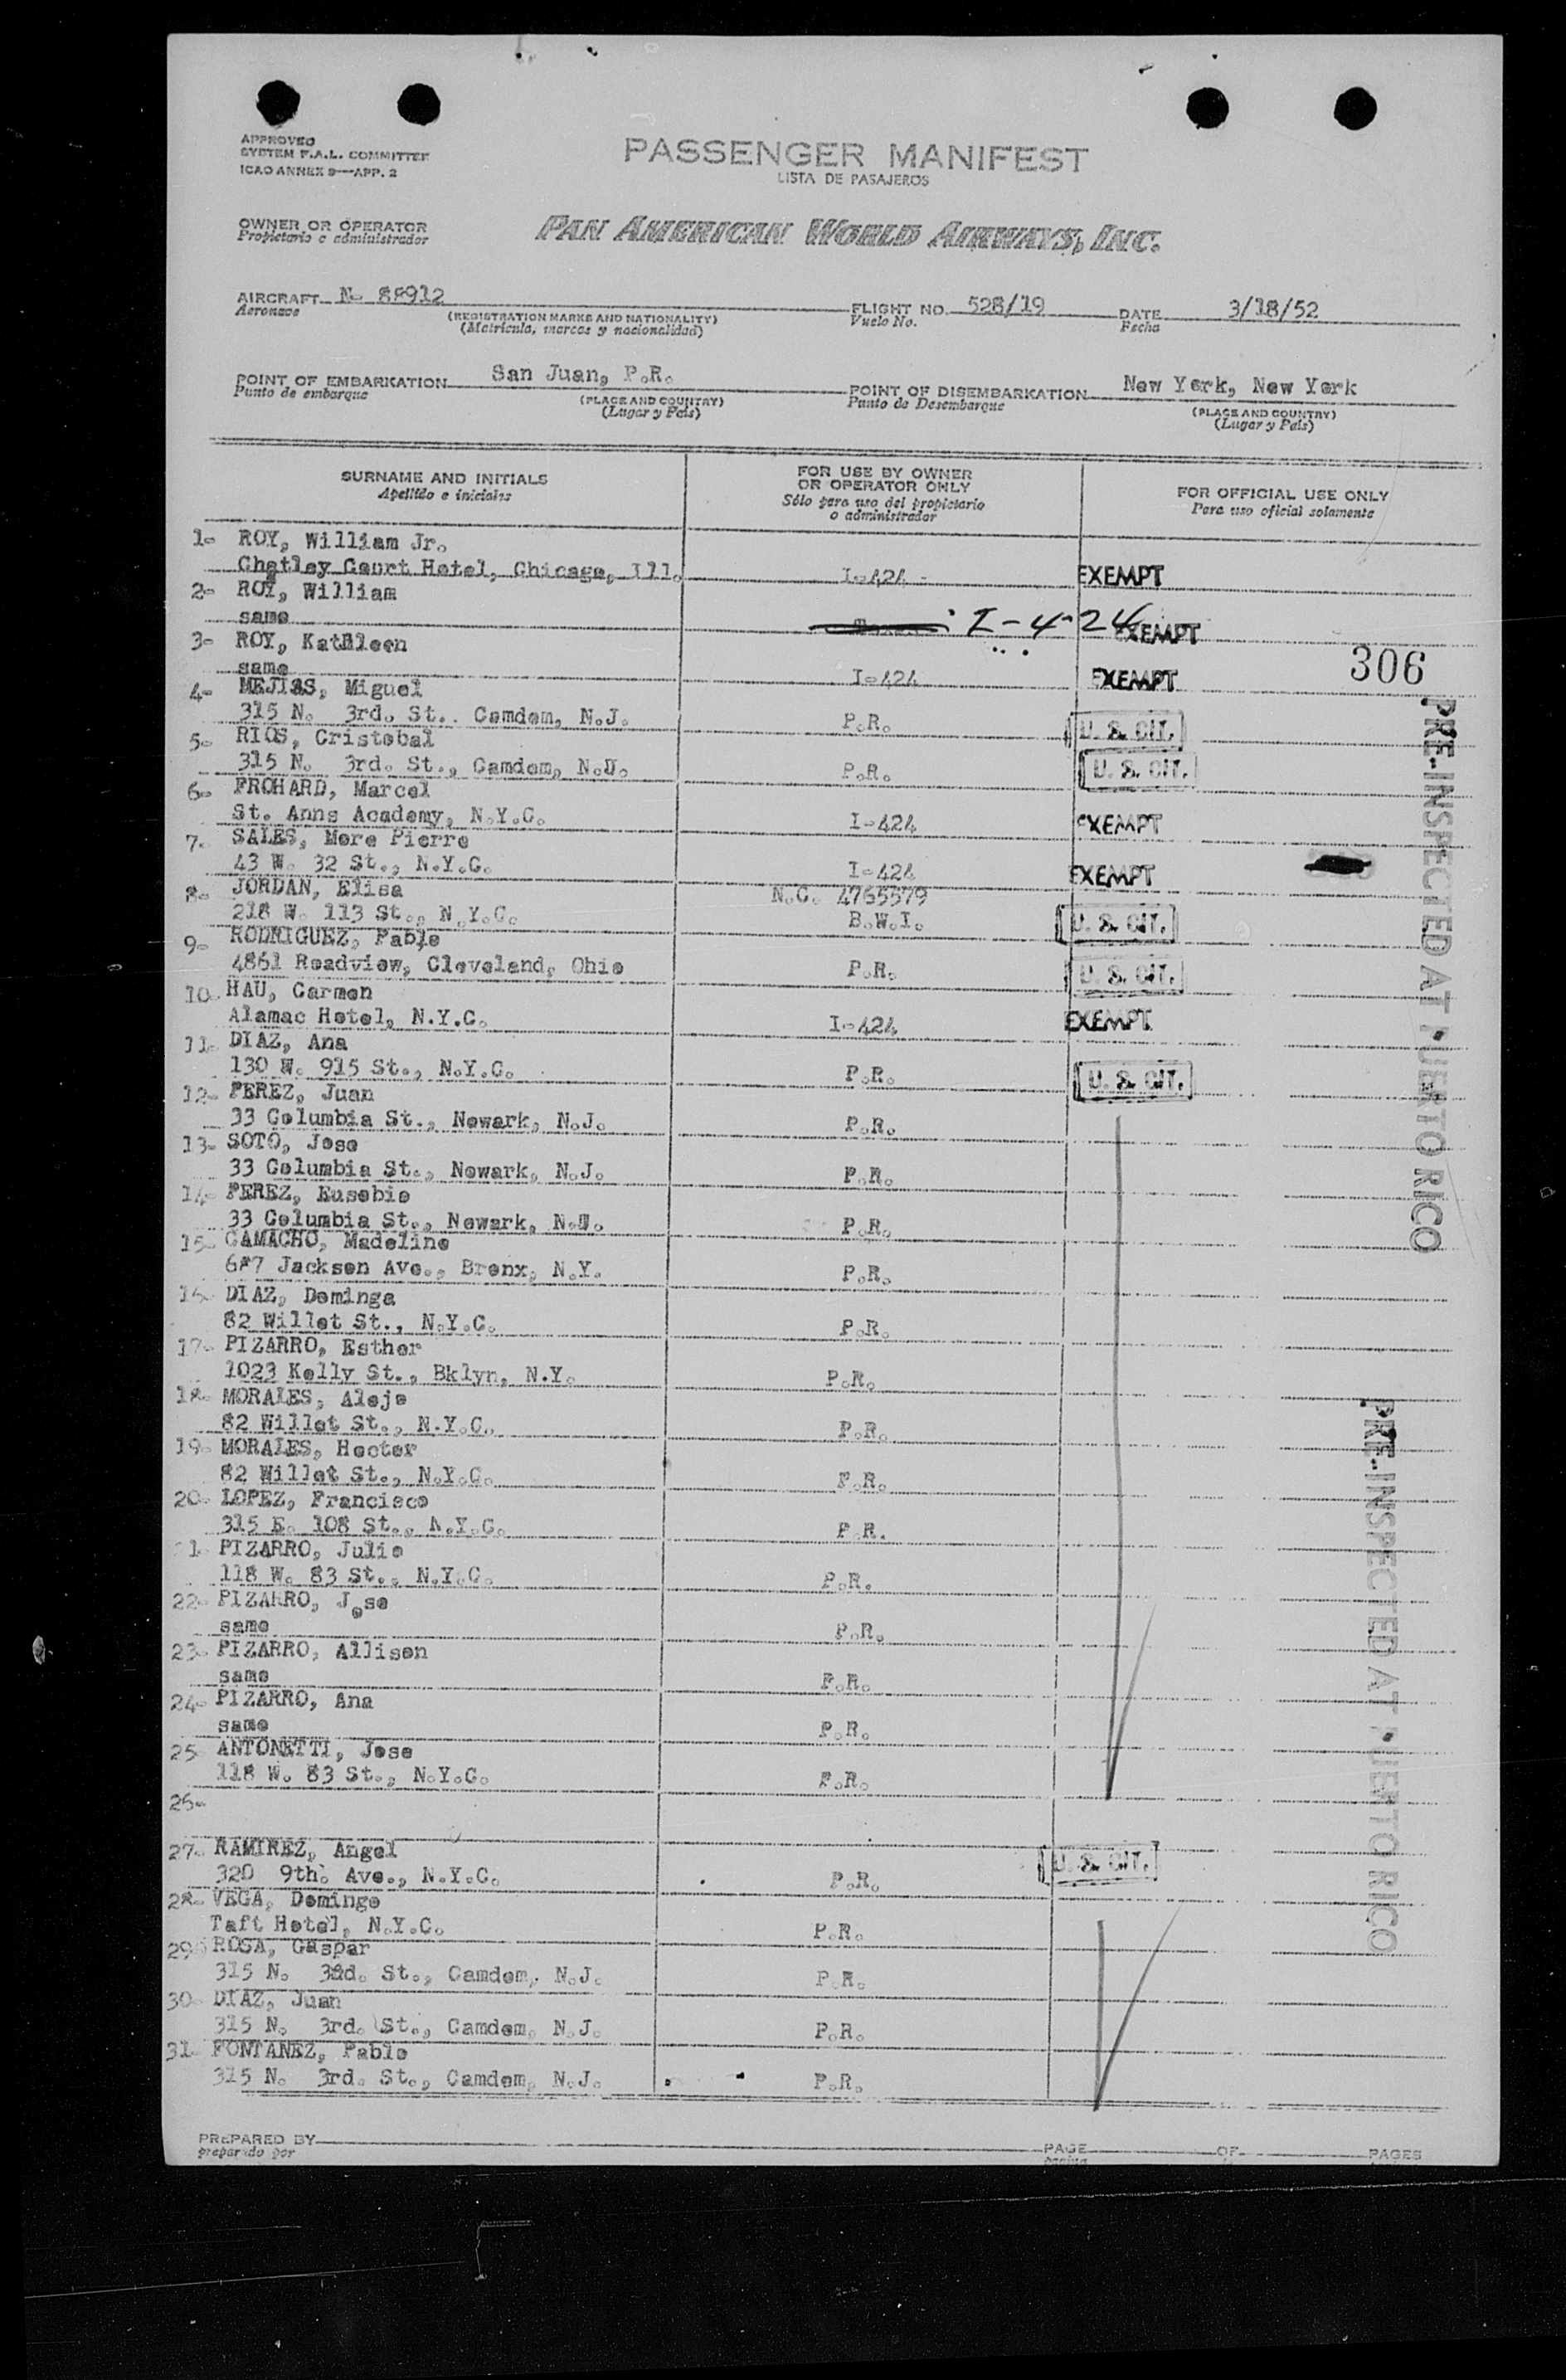 APPROVED
SYSTEM F.A.L. COMMITTEE
ICAO ANNEX 9—APP. 2
PASSENGER MANIFEST
LISTA DE PASAJEROS
OWNER OR OPERATOR
Propietario o administrador
PAN AMERICAN WORLD AIRWAYS, INC.
AIRCRAFT N- 88912
Aeronave
(REGISTRATION MARKS AND NATIONALITY)
(Matricula, marcas y nacionalidad)
FLIGHT NO. 528/19
Vuelo No.
DATE 3/18/52
Fecha
POINT OF EMBARKATION San Juan, P.R.
Punto de embarque
(PLACE AND COUNTRY)
(Lugar y País)
POINT OF DISEMBARKATION New York, New York
Punto de Desembarque
(PLACE AND COUNTRY)
(Lugar y País)
SURNAME AND INITIALS
Apellido e iniciales
FOR USE BY OWNER
OR OPERATOR ONLY
Sólo para uso del propietario
o administrador
FOR OFFICIAL USE ONLY
Para uso oficial solamente
1- ROY, William Jr.
Chatley Court Hotel, Chicago, Ill. I-424 - EXEMPT
2- ROY, William
same I-424 EXEMPT
3- ROY, Kathleen
306
same I-424 EXEMPT
4- MEJIAS, Miguel
315 N. 3rd. St.. Camdem, N.J. P.R. U. S. CIT.
5- RIOS, Cristobal
315 N. 3rd. St., Camdem, N.J. P.R. U. S. CIT.
6- FROHARD, Marcel
St. Anns Academy, N.Y.C. I-424 EXEMPT
7- SALES, Mere Pierre
43 W. 32 St., N.Y.C. I-424 EXEMPT
8- JORDAN, Elisa N.C. 4765579
218 W. 113 St., N.Y.C. B.W.I. U. S. CIT.
9- RODRIGUEZ, Pablo
4861 Roadview, Cleveland, Ohio P.R. U. S. CIT.
10- HAU, Carmen
Alamac Hotel, N.Y.C. I-424 EXEMPT
11- DIAZ, Ana
130 W. 915 St., N.Y.C. P.R. U. S. CIT.
12- PEREZ, Juan
33 Columbia St., Newark, N.J. P.R.
13- SOTO, Jose
33 Columbia St., Newark, N.J. P.R.
14- PEREZ, Eusebio
33 Columbia St., Newark, N.J. P.R.
15- CAMACHO, Madeline
687 Jackson Ave., Bronx, N.Y. P.R.
16- DIAZ, Dominga
82 Willet St., N.Y.C. P.R.
17- PIZARRO, Esther
1023 Kelly St., Bklyn, N.Y. P.R.
18- MORALES, Alejo
82 Willet St., N.Y.C. P.R.
19- MORALES, Hector
82 Willet St., N.Y.C. P.R.
20- LOPEZ, Francisco
315 E. 108 St., N.Y.C. P.R.
21- PIZARRO, Julio
118 W. 83 St., N.Y.C. P.R.
22- PIZARRO, Jose
same P.R.
23- PIZARRO, Allison
same P.R.
24- PIZARRO, Ana
same P.R.
25- ANTONETTI, Jose
118 W. 83 St., N.Y.C. P.R.
26-
27- RAMIREZ, Angel
320 9th. Ave., N.Y.C. P.R. U. S. CIT.
28- VEGA, Domingo
Taft Hotel, N.Y.C. P.R.
29- ROSA, Gaspar
315 N. 3rd. St., Camdem, N.J. P.R.
30- DIAZ, Juan
315 N. 3rd. St., Camdem, N.J. P.R.
31- FONTANEZ, Pablo
315 N. 3rd. St., Camdem, N.J. P.R.
PRE-INSPECTED AT PUERTO RICO
PRE-INSPECTED AT PUERTO RICO
PREPARED BY
preparado por
PAGE OF PAGES
pagina